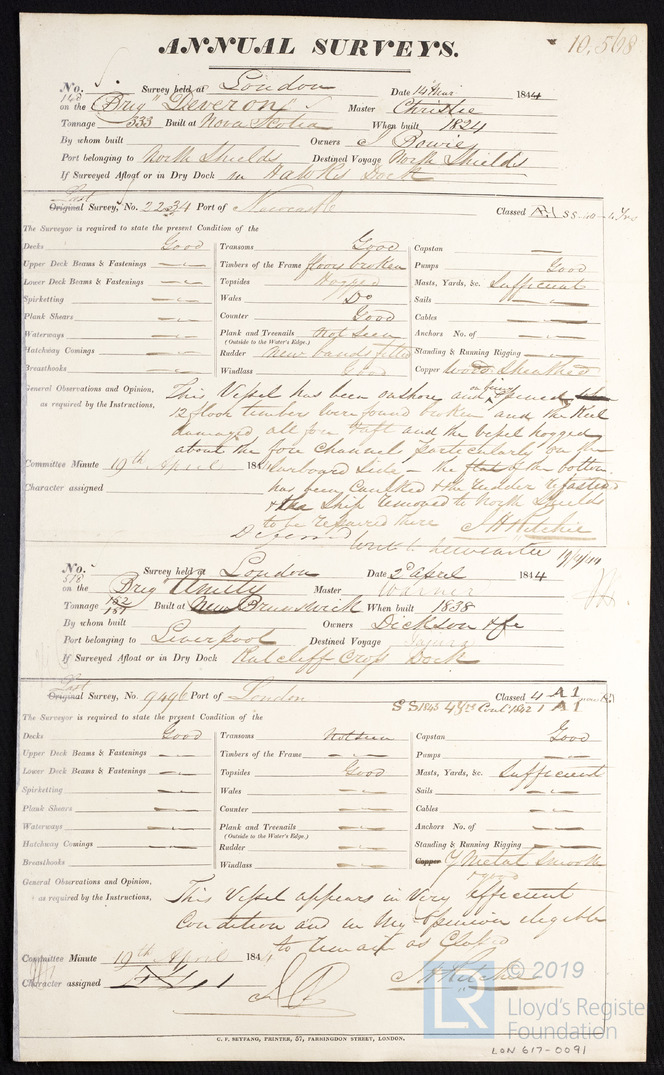 10,508
ANNUAL SURVEYS.
No. 140 Survey held at London Date 14 Mar 1844
on the Brig "Deveron" Master Christie
Tonnage 333 Built at Nova Scotia When built 1824
By whom built Owners J Bowie
Port belonging to North Shields Destined Voyage North Shields
If Surveyed Afloat or in Dry Dock in Hawks Dock
Last
Original Survey, No. 2234 Port of Newcastle Classed
The Surveyor is required to state the present Condition of the
Decks Good Transoms Good Capstan
Upper Deck Beams & Fastenings Timbers of the Frame floors broken Pumps Good
Lower Deck Beams & Fastenings Topsides Hogged Masts, Yards, &c. Sufficient
Spirketting Wales Do Sails
Plank Shears Counter Good Cables
Waterways Plank and Treenails Not Seen Anchors No. of
(Outside to the Water's Edge.)
Hatchway Comings Rudder New bands fitted Standing & Running Rigging
Breasthooks Windlass Good Copper Wood Sheathed
General Observations and Opinion, This Vessel has been onshore and on being opened
as required by the Instructions, 12 floor timbers were found broken and the Keel
damaged all fore & aft and the vessel hogged
about the fore channels particularly on the
Committee Minute 19th April 184 Larboard Side - the flat of the bottom
Character assigned has been Caulked & the Rudder refastend
& the Ship removed to North Shields
to be repaired there J H Ritchie
Deferred Write to Newcastle 19/4/44
No. 518 Survey held at London Date 2d April 1844
on the Brig Amity Master
Tonnage 182/187 Built at New Brunswick When built 1838
By whom built Owners Dickson & Co
Port belonging to Liverpool Destined Voyage
If Surveyed Afloat or in Dry Dock Ratcliff Cross Dock
Last
Original Survey, No. 9496 Port of London Classed 4 A1
SS 1843 4Yrs Cont 1842 1 A1
The Surveyor is required to state the present Condition of the
Decks Good Transoms Not seen Capstan Good
Upper Deck Beams & Fastenings Timbers of the Frame Pumps
Lower Deck Beams & Fastenings Topsides Good Masts, Yards, &c. Sufficient
Spirketting Wales Sails
Plank Shears Counter Cables
Waterways Plank and Treenails Anchors No. of
(Outside to the Water's Edge.)
Hatchway Comings Rudder Standing & Running Rigging
Breasthooks Windlass Copper Y Metal Smooth
& good
General Observations and Opinion,
as required by the Instructions, This Vessel appears in Very efficient
Condition and in My Opinion eligible
to remain as Classed
Committee Minute 19th April 1844
Character assigned J H Ritchie
© 2019
LR
Lloyd's Register
Foundation
C. F. SEYFANG, PRINTER, 57, FARRINGDON STREET, LONDON.
LON 617-0091